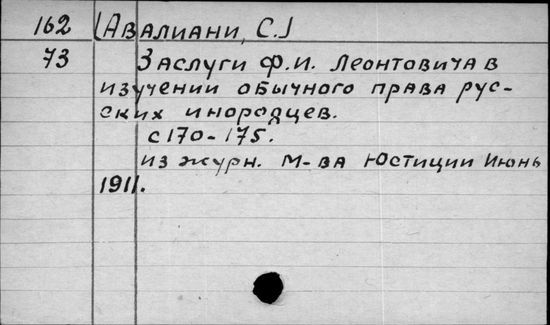 162 [Авалиани, С.]
73 Заслуги Ф.И. Леонтовича в
изучении обычного права рус-
ских инородцев.
с 170-175.
из журн. М-ва Юстиции Июнь
1911.